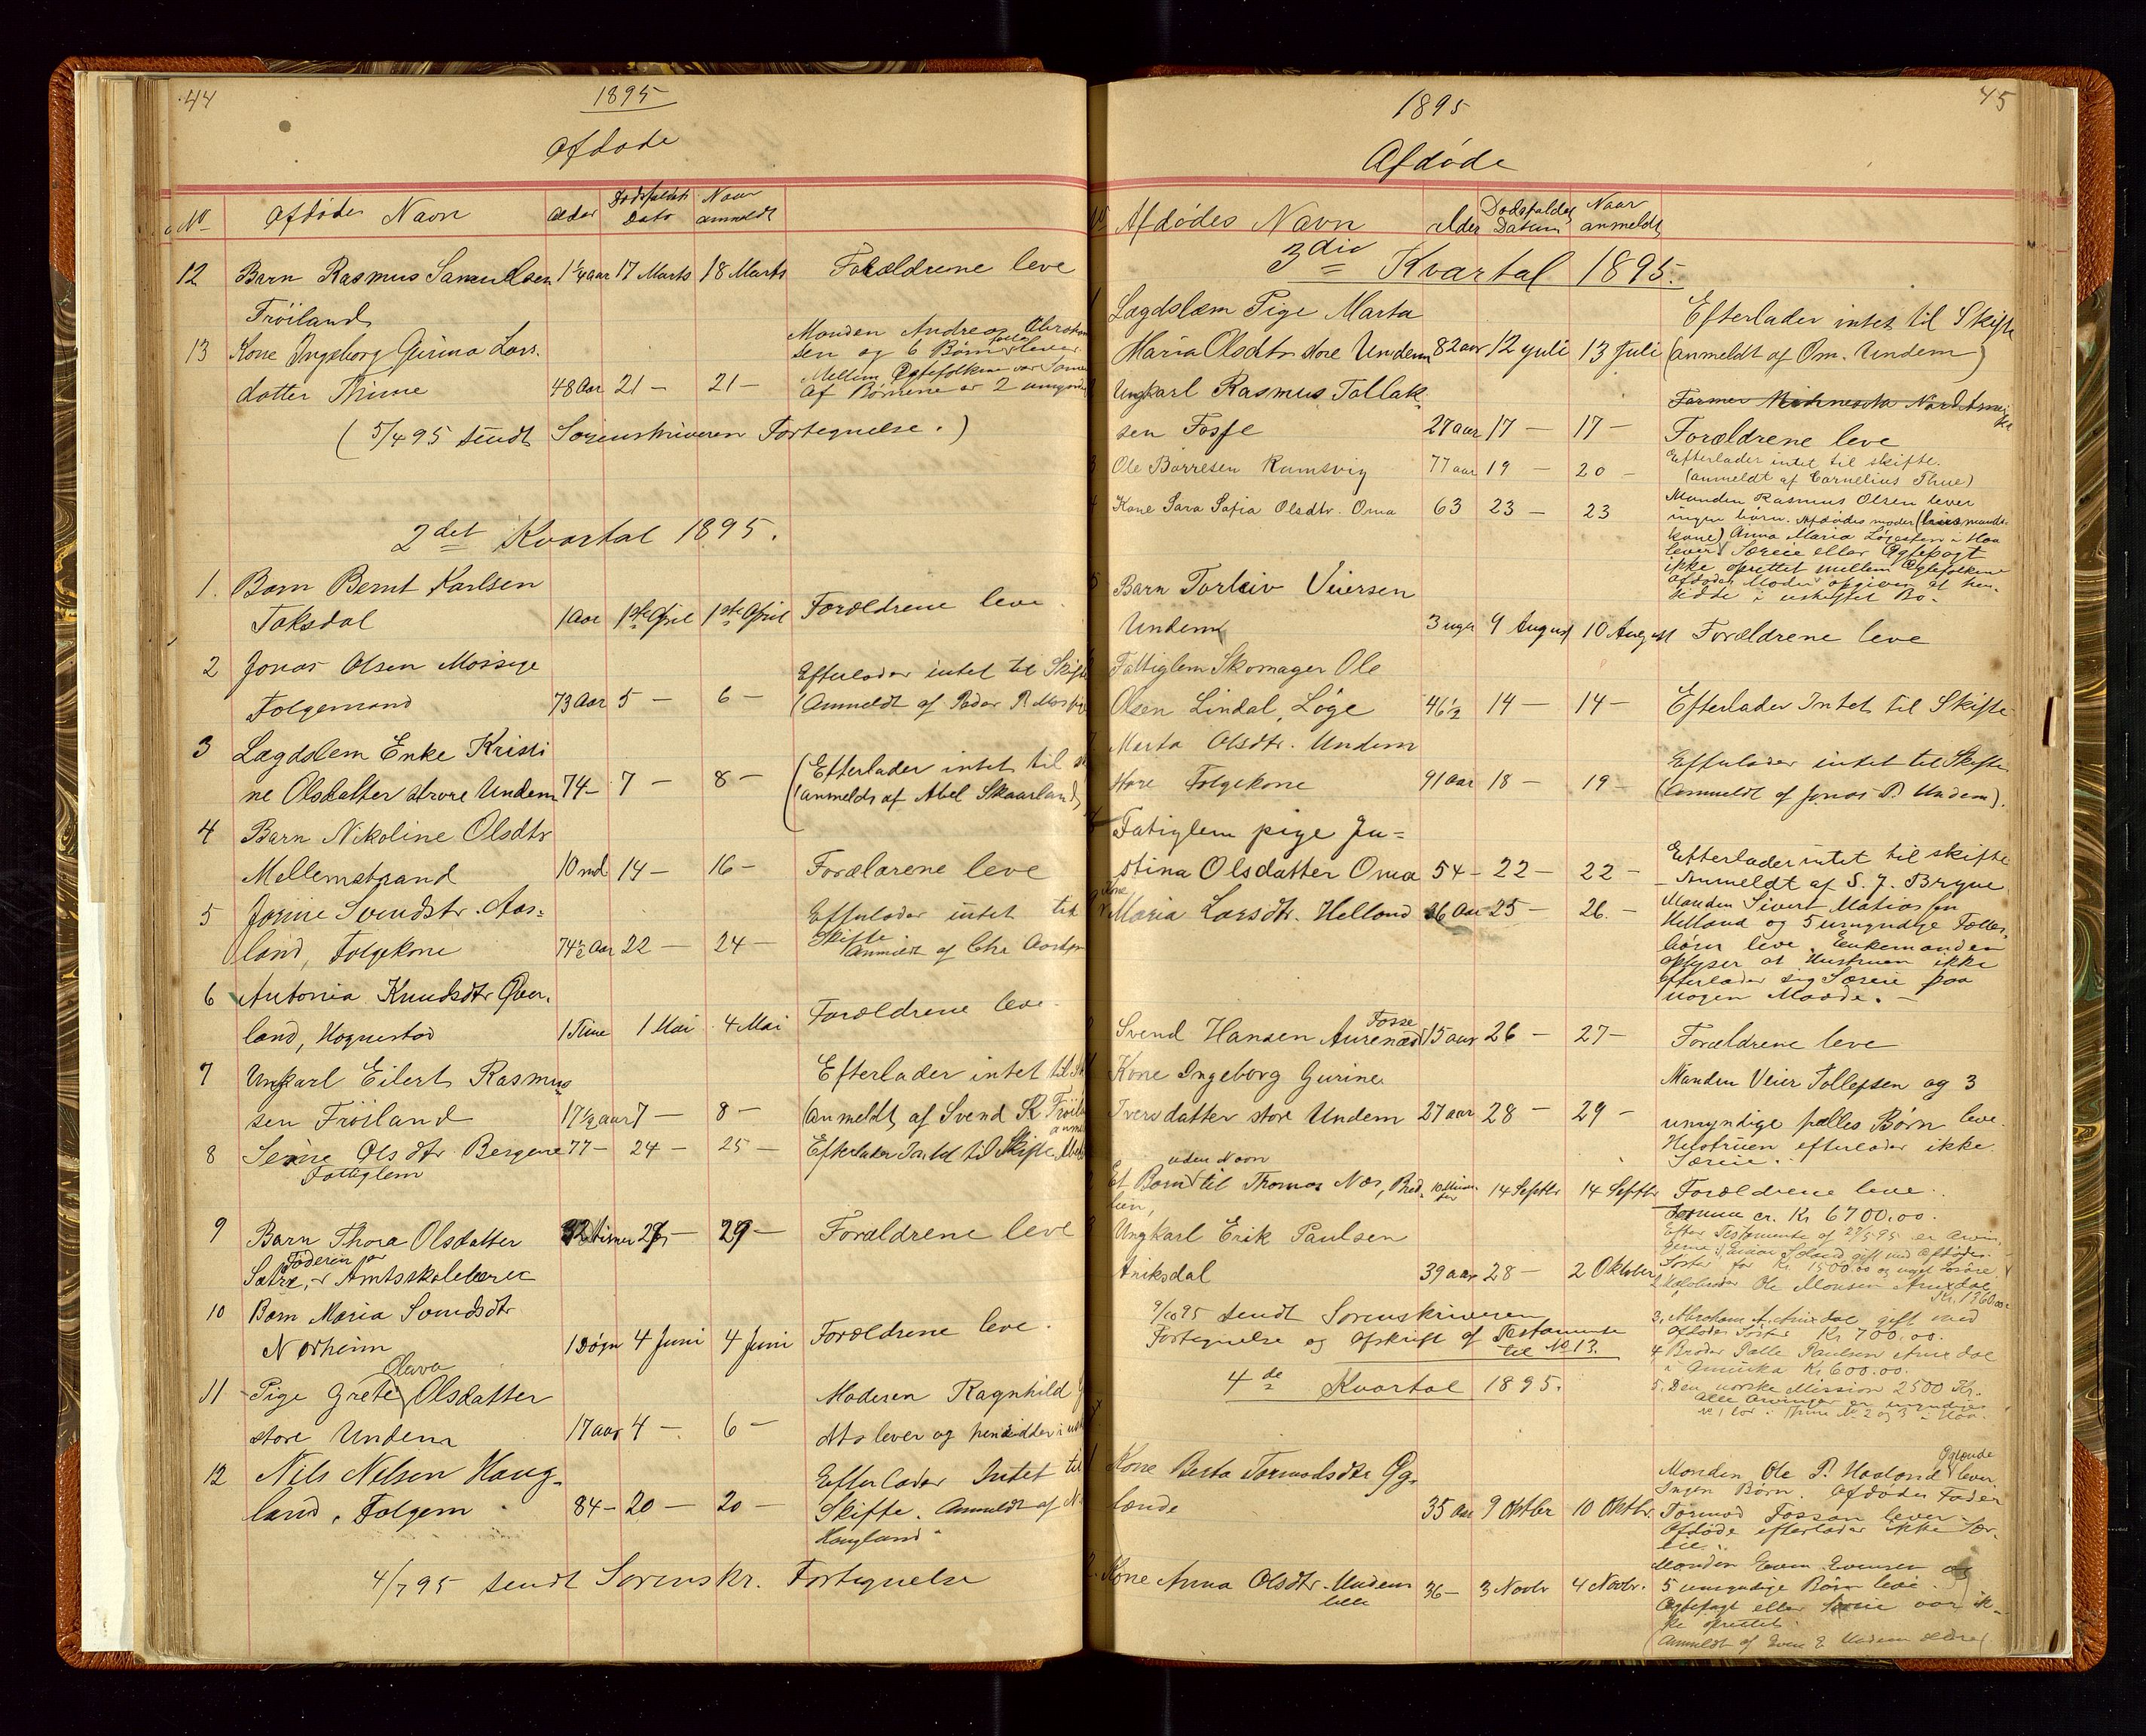 44
1895
Afdøde
No Afdødes Navn Alder Dødsfaldets Dato Naar anmeldt
12 Barn Rasmus Samuelsen 1¼ aar 17 Marts 18 Marts Forældrene leve
Frøiland
13 Kone Ingeborg Gurina Lars- Manden Andreas
datter Thime 48 Aar 21 — 21 — sen og 6 Børn lever.
Mellem Ægtefolkene var
Af Børnene er 2
( 5/4 95 sendt Sorenskriveren Fortegnelse. )
2det Kvartal 1895.
1. Barn Bernt Karlsen
Taksdal 1 Aar 1ste April 1ste April Forældrene leve.
2 Jonas Olsen Mossige Efterlader intet til Skifte
Folgemand 73 Aar 5 — 6 — (Anmeldt af Peder R. Mossige
3 Lægdslem Enke Kristi (Efterlader intet til
ne Olsdatter store Undem 74 — 7 — 8 — (anmeldt af Abel Skaarland)
4 Barn Nikoline Olsdtr
Mellemstrand 10 md 14 — 16 — Forældrene leve
5 Jorine Svendsdtr. Aas- Efterlader intet til
land, Folgekone 74½ Aar 22 — 24 — Skifte
Anmeldt af Chr
6 Antonia Knudsdtr Øver-
land, Hognestad 1 Time 1 Mai 4 Mai Forældrene leve.
7 Ungkarl Eilert Rasmus- Efterlader intet til
sen Frøiland 17½ aar 7 — 8 — (anmeldt af Svend
8 Serine Olsdtr Bergene 77 — 24 — 25 — Efterlader Intet til Skifte
Fattiglem
9 Barn Thora Olsdatter 29 — Forældrene leve
Sætre, Amtsskolelærer
10 Barn Maria Svendsdtr
Norheim 1 Døgn 4 Juni 4 Juni Forældrene leve.
Olava
11 Pige Grete Olsdatter Moderen Ragnhild
store Undem 17 aar 4 — 6 — dtr lever og hensidder i
12 Nils Nelsen Haug- Efterlader Intet til
land, Folgem. 84 — 20 — 20 — Skifte. Anmeldt af
Haugland
4/7 95 sendt Sorenskr. Fortegnelse
45
1895
Afdøde
No Afdødes Navn Alder Dødsfaldes Datum Naar anmeldt
3die Kvartal 1895.
Lægdslem Pige Marta Efterlader intet til Skifte
Maria Olsdtr store Undem 82 aar 12 Juli 13 Juli (anmeldt af Om. Undem)
Ungkarl Rasmus Tollak-
sen Fosse 27 aar 17 — 17 — Forældrene leve
3 Ole Børresen Ramsvig 77 aar 19 — 20 — Efterlader intet til skifte.
(anmeldt af Cornelius Thue)
4 Kone Sara Sofia Olsdtr. Oma 63 23 — 23 Manden Rasmus Olsen lever
ingen børn. Afdødes moder
kone) Anna Maria
lever. Særeie eller Ægtepagt
ikke oprettet mellem Ægtefolkene
Afdødes Moder opgives at hen-
sidde i uskiftet Bo.
5 Barn Torleiv Veiersen
Undem 3 uger 9 August 10 August Forældrene leve
Fattiglem Skomager Ole
Olsen Lindal, Løge 46½ 14 — 14 — Efterlader Intet til Skifte
Marta Olsdtr. Undem Efterlader intet til Skifte
store Folgekone 91 Aar 18 — 19 — (Anmeldt af Jonas P. Undem).
Fatiglem pige Ju-
stina Olsdatter Oma 54 — 22 — 22 — Efterlader intet til skifte
— Anmeldt af S. J. Bryne
Kone
Maria Larsdtr. Helland 36 Aar 25 — 26. — Manden Sivert Matiassen
Helland og 5 umyndige Fælles-
børn leve. Enkemanden
oplyser at Hustruen ikke
efterlader sig Særeie paa
nogen Maade. —
Fosse
Svend Hansen Aurenæs 15 aar 26 — 27 — Forældrene leve
Kone Ingeborg Gurine Manden Veier Tollefsen og 3
Iversdatter store Undem 27 aar 28 — 29 — umyndige fælles Børn leve.
Hustruen efterlader ikke
Særeie.
uden Navn
Et Barn til Thomas Næs, 14 Septbr 14 Septbr Forældrene leve.
lien,
er. Kr 6700.00.
Ungkarl Erik Paulsen
Aniksdal 39 aar 28 — 2 Oktober
Efter Testamente af
gift med Afdødes
Søster for Kr. 1500.00 og
Ole Monsen
Kr. 1360.00
9/10 95 sendt Sorenskriveren
Fortegnelse og Afskrift af Testamente
til No 13.
3, Abraham A. Anixdal gift med
Afdødes Søster Kr 700.00.
4 Broder Palle Paulsen Anixdal
i Amerika Kr. 600.00.
5. Den norske Mission 2500 Kr.
Alle Arvinger er myndige
No 1 bor i Thime No 2 og 3 i Haa.
4de Kvartal 1895.
1 Kone Berta Tormodsdtr Øg-
lænde 35 Aar 9 Oktbr 10 Oktbr. Manden Ole P. Haaland Øglænde lever.
Ingen Børn. Afdødes Fader
Tormod Fossan lever.
Afdøde efterlader ikke Sær-
eie.
2. Kone Anna Olsdtr. Undem 36 — 3 Novbr 4 Novbr.
lille
Manden Even Evensen og
5 umyndige Børn leve.
Ægtepagt eller Særeie var ik-
ke oprettet.
(Anmeldt af Even E Undem